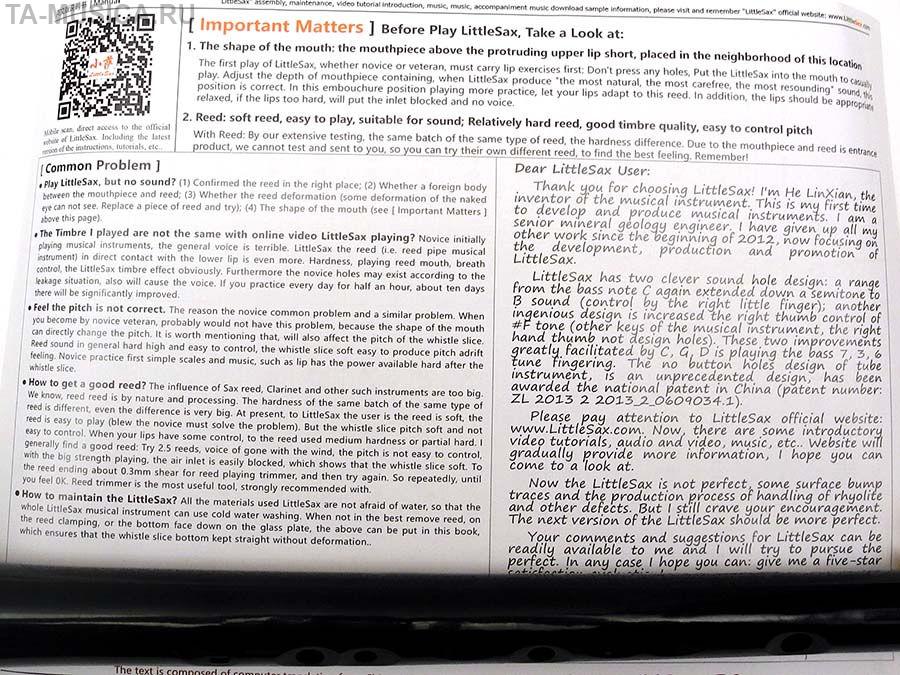 TA-MUSICA.RU
Manual
LittleSax" assembly, maintenance, video tutorial introduction, music, music, accompaniment music download sample information, please visit and remember "LittleSax" official website: www.LittleSax.com
[ Important Matters ] Before Play LittleSax, Take a Look at:
小萨
LittleSax
1. The shape of the mouth: the mouthpiece above the protruding upper lip short, placed in the neighborhood of this location
The first play of LittleSax, whether novice or veteran, must carry lip exercises first: Don't press any holes, Put the LittleSax into the mouth to casually
play. Adjust the depth of mouthpiece containing, when LittleSax produce "the most natural, the most carefree, the most resounding" sound, this
position is correct. In this embouchure position playing more practice, let your lips adapt to this reed. In addition, the lips should be appropriate
relaxed, if the lips too hard, will put the inlet blocked and no voice.
2. Reed: soft reed, easy to play, suitable for sound; Relatively hard reed, good timbre quality, easy to control pitch
With Reed: By our extensive testing, the same batch of the same type of reed, the hardness difference. Due to the mouthpiece and reed is entrance
product, we cannot test and sent to you, so you can try their own different reed, to find the best feeling. Remember!
Mobile scan, direct access to the official
website of LittleSax. Including the latest
version of the instructions, tutorials, etc..
[ Common Problem ]
• Play LittleSax, but no sound? (1) Confirmed the reed in the right place; (2) Whether a foreign body
between the mouthpiece and reed; (3) Whether the reed deformation (some deformation of the naked
eye can not see. Replace a piece of reed and try); (4) The shape of the mouth (see [ Important Matters ]
above this page).
• The Timbre I played are not the same with online video LittleSax playing? Novice initially
playing musical instruments, the general voice is terrible. LittleSax the reed (i.e. reed pipe musical
instrument) in direct contact with the lower lip is even more. Hardness, playing reed mouth, breath
control, the LittleSax timbre effect obviously. Furthermore the novice holes may exist according to the
leakage situation, also will cause the voice. If you practice every day for half an hour, about ten days
there will be significantly improved.
• Feel the pitch is not correct. The reason the novice common problem and a similar problem. When
you become by novice veteran, probably would not have this problem, because the shape of the mouth
can directly change the pitch. It is worth mentioning that, will also affect the pitch of the whistle slice.
Reed sound in general hard high and easy to control, the whistle slice soft easy to produce pitch adrift
feeling. Novice practice first simple scales and music, such as lip has the power available hard after the
whistle slice.
• How to get a good reed? The influence of Sax reed, Clarinet and other such instruments are too big.
We know, reed reed is by nature and processing. The hardness of the same batch of the same type of
reed is different, even the difference is very big. At present, to LittleSax the user is the reed is soft, the
reed is easy to play (blew the novice must solve the problem). But the whistle slice pitch soft and not
easy to control. When your lips have some control, to the reed used medium hardness or partial hard. I
generally find a good reed: Try 2.5 reeds, voice of gone with the wind, the pitch is not easy to control,
with the big strength playing, the air inlet is easily blocked, which shows that the whistle slice soft. To
the reed ending about 0.3mm shear for reed playing trimmer, and then try again. So repeatedly, until
you feel OK. Reed trimmer is the most useful tool, strongly recommended with.
• How to maintain the LittleSax? All the materials used LittleSax are not afraid of water, so that the
whole LittleSax musical instrument can use cold water washing. When not in the best remove reed, on
the reed clamping, or the bottom face down on the glass plate, the above can be put in this book,
which ensures that the whistle slice bottom kept straight without deformation..
Dear LittleSax User:
Thank you for choosing LittleSax! I'm He LinXian, the
inventor of the musical instrument. This is my first time
to develop and produce musical instruments. I am a
senior mineral geology engineer. I have given up all my
other work since the beginning of 2012, now focusing on
the development, production and promotion of
LittleSax.
LittleSax has two clever sound hole design: a range
from the bass note C again extended down a semitone to
B sound (control by the right little finger); another
ingenious design is increased the right thumb control of
#F tone (other keys of the musical instrument, the right
hand thumb not design holes). These two improvements
greatly facilitated by C, G, D is playing the bass 7, 3, 6
tune fingering. The no button holes design of tube
instrument, is an unprecedented design, has been
awarded the national patent in China (patent number:
ZL 2013 2 2013_2_0609034.1).
Please pay attention to LittleSax official website:
www.LittleSax.com. Now, there are some introductory
video tutorials, audio and video, music, etc.. Website will
gradually provide more information, I hope you can
come to a look at.
Now the LittleSax is not perfect, some surface bump
traces and the production process of handling of rhyolite
and other defects. But I still crave your encouragement.
The next version of the LittleSax should be more perfect.
Your comments and suggestions for LittleSax can be
readily available to me and I will try to pursue the
perfect. In any case I hope you can: give me a five-star
The text is composed of computer